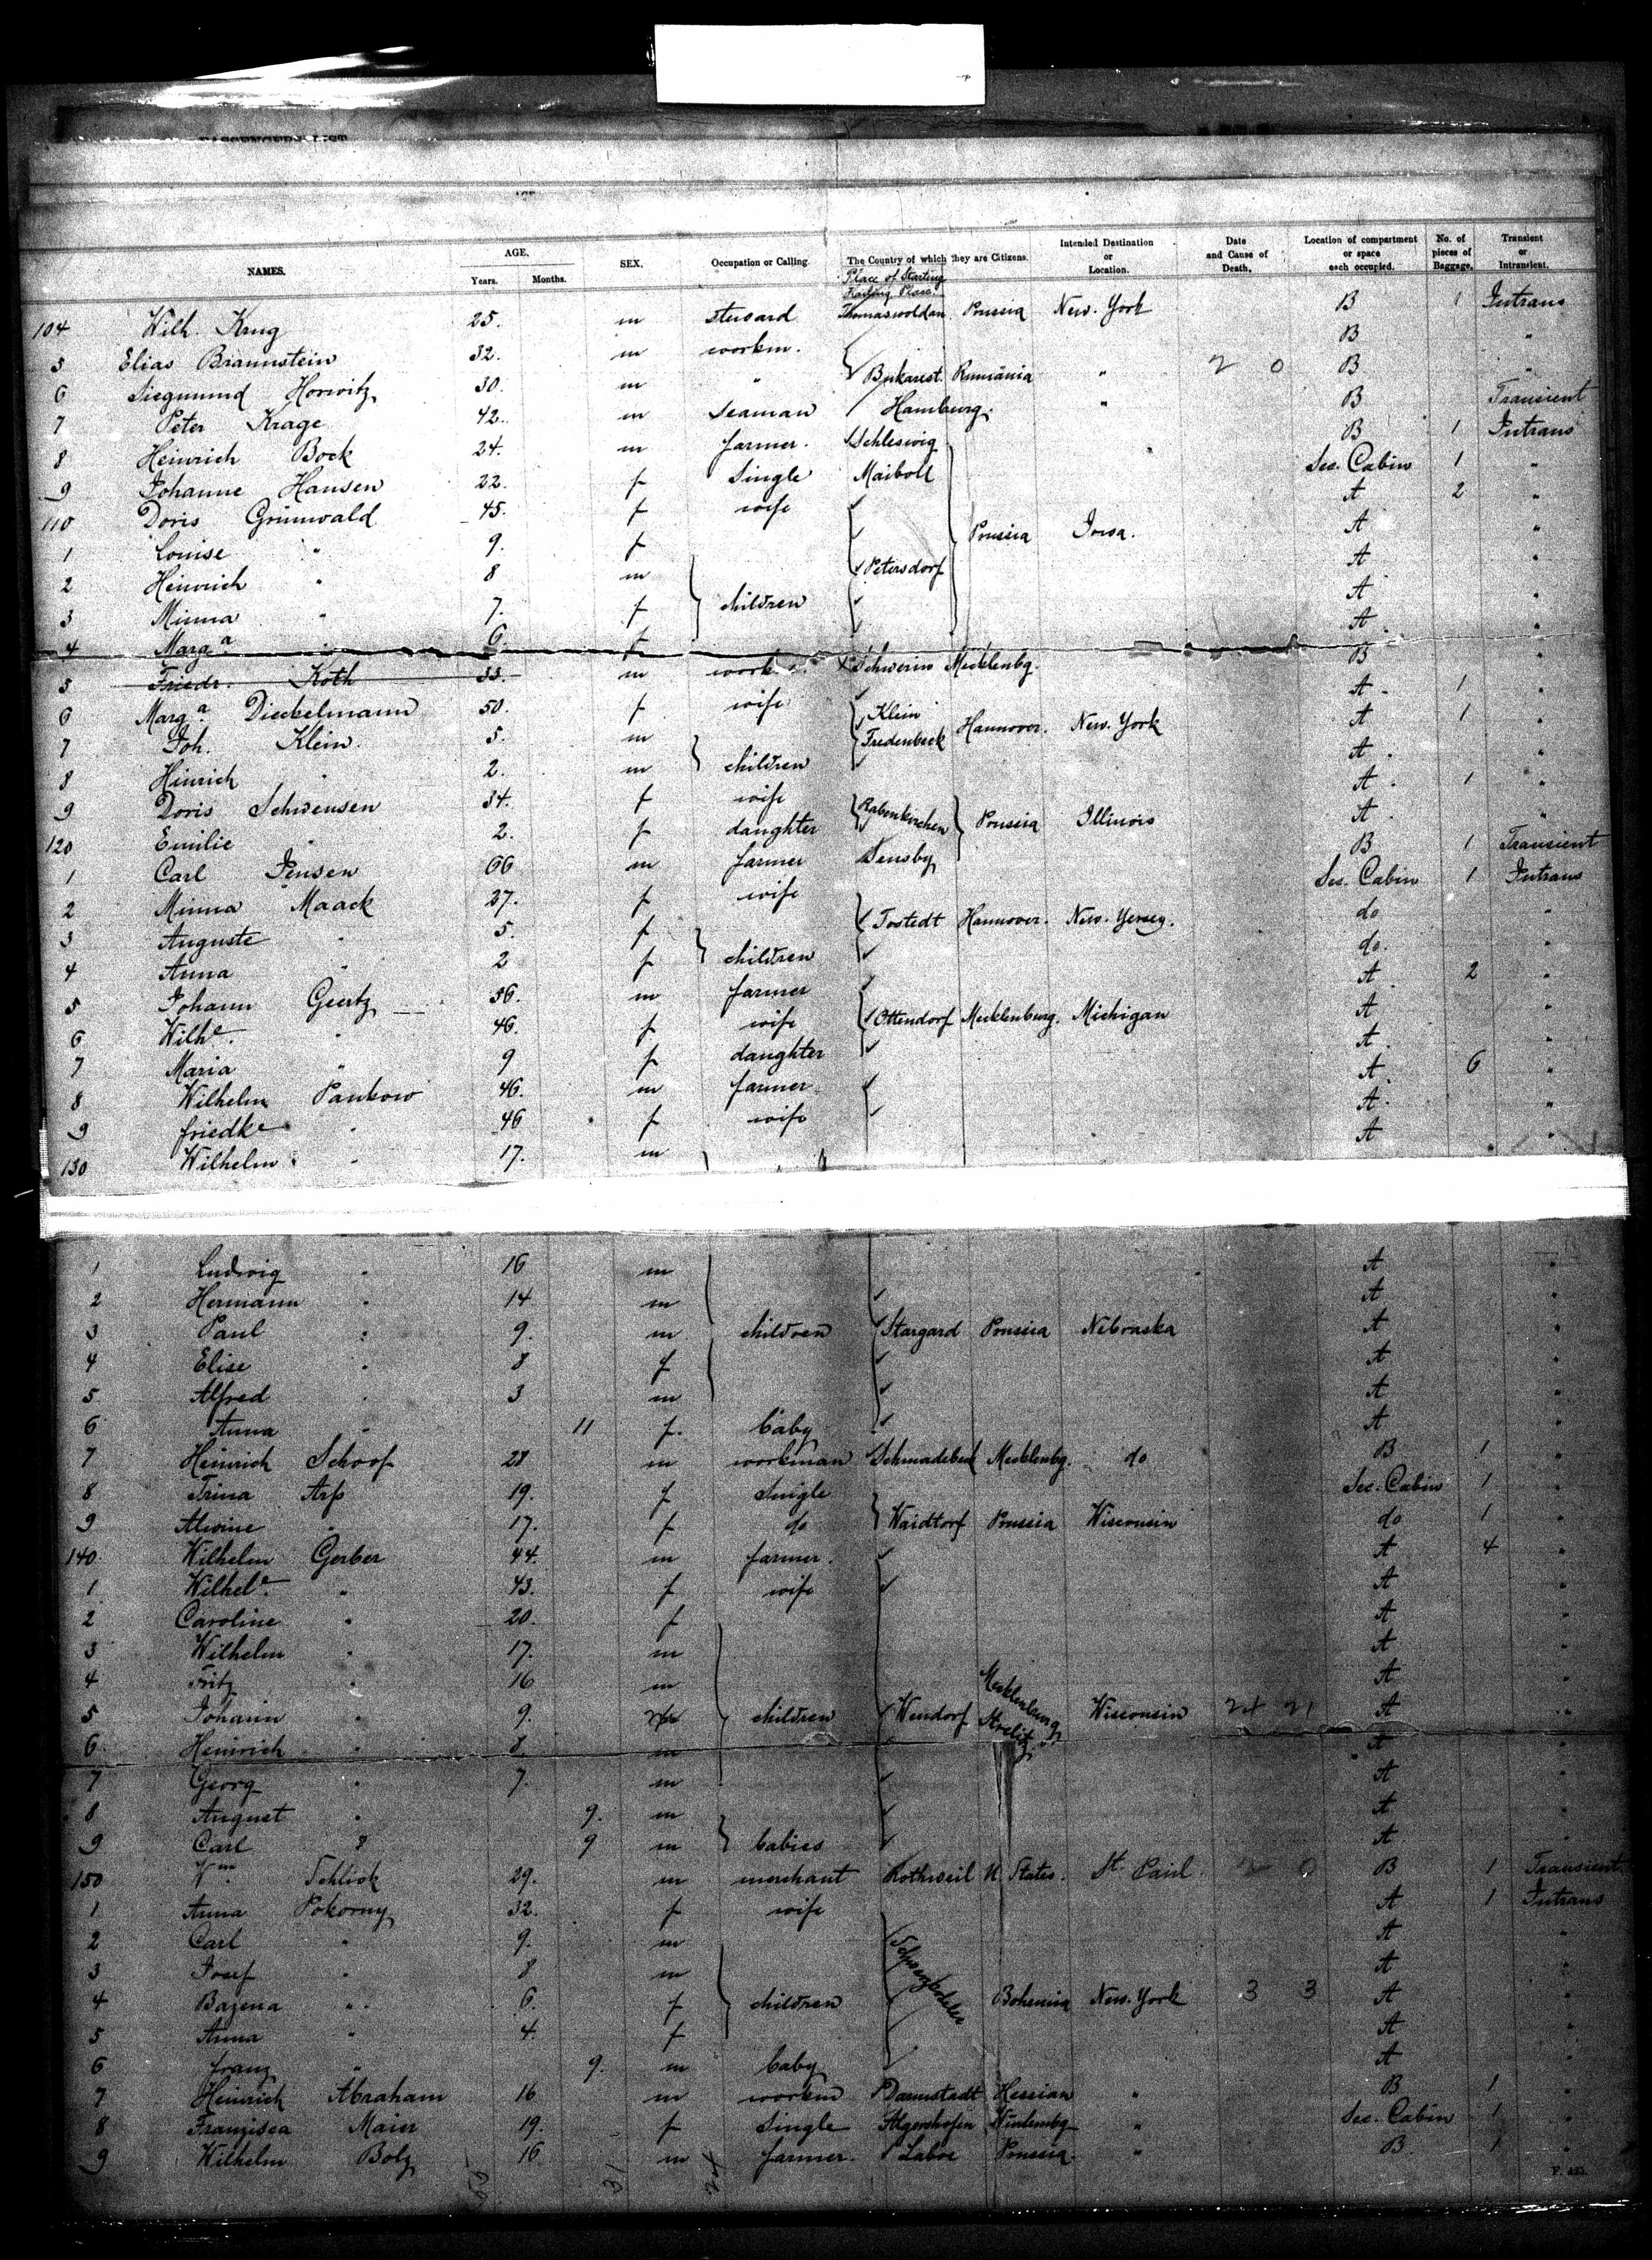 PASSENGERS LIST
AGE
NAMES. AGE. Years. Months. SEX. Occupation or Calling. The Country of which they are Citizens. Intended Destination or Location. Date and Cause of Death. Location of compartment or space each occupied. No. of pieces of Baggage. Transient or Intransient.
Place of Starting
104 Wilh. Krug 25. m steward Thomaswoldau Prussia New. York B 1 Intrans
5 Elias Braunstein 32. m workm. B "
6 Siegmund Horwitz 30. m " Bukarest Rumänia " 2 0 B "
7 Peter Krage 42. m Seaman Hamburg. " B Transient
8 Heinrich Bock 24. m farmer. Schleswig B 1 Intrans
9 Johanne Hansen 22. f Single Maiboll Sec. Cabin 1 "
110 Doris Grünwald 45. f wife A 2 "
1 Louise " 9. f Prussia Iowa. A "
2 Heinrich " 8 m Petersdorf A "
3 Minna " 7. f children A "
4 Marga " 6. f A "
5 Friedr. Koth 33. m work Schwerin Mecklenbg. B "
6 Marga. Dieckelmann 50. f wife A 1 "
7 Joh. Klein 5. m Klein Fredenbeck Hannover. New. York A 1 "
8 Hinrich " 2. m children A "
9 Doris Schwensen 34. f wife A 1 "
120 Emilie " 2. f daughter Rabenkirchen Prussia Illinois A "
1 Carl Jensen 66 m farmer Sensby B 1 Transient
2 Minna Maack 27. f wife Sec. Cabin 1 Intrans
3 Auguste " 5. f Tostedt Hannover. New. Yersey. do "
4 Anna " 2 f children do. "
5 Johann Geertz 56. m farmer A 2 "
6 Wilhe. " 46. f wife Ottendorf Mecklenburg. Michigan A "
7 Maria " 9 f daughter A "
8 Wilhelm Pankow 46. m farmer A 6 "
9 Friedke " 46 f wife A "
130 Wilhelm " 17. m A "
1 Ludwig " 16 m A "
2 Hermann " 14 m A "
3 Paul " 9. m children Stargard Prussia Nebraska A "
4 Elise " 8 f A "
5 Alfred " 3 m A "
6 Anna " 11 f. baby A "
7 Heinrich Schoof 28 m workman Schmadebeck Mecklenbg. do B 1 "
8 Trina Arp 19. f Single Sec. Cabin 1 "
9 Alwine " 17. f do Waidtorf Prussia Wisconsin do 1 "
140 Wilhelm Gerber 44. m farmer. A 4 "
1 Wilhele. " 43. f wife A "
2 Caroline " 20. f A "
3 Wilhelm " 17. m A "
4 Fritz " 16 m A "
5 Johann " 9. m children Wendorf Mecklenburg Strelitz Wisconsin 24 21 A "
6 Heinrich " 8. m A "
7 Georg " 7. m A "
8 August " 9. m A "
9 Carl " 9 m babies A "
150 Schlick 29. m merchant Rothweil U States. St. Paul 2 0 B 1 Transient
1 Anna Pokorny 32. f wife A 1 Intrans
2 Carl " 9. m A "
3 Josef " 8 m A "
4 Bazena " 6. f children Bohemia New. York 3 3 A "
5 Anna " 4. f A "
6 Franz " 9. m baby A "
7 Heinrich Abraham 16 m workm Darmstadt Hessian " B 1 "
8 Franzisca Maier 19. f Single Algershofen Würtembg " Sec. Cabin 1 "
9 Wilhelm Bolz 16 m farmer. Laboe Prussia. " B. 1 "
31 24